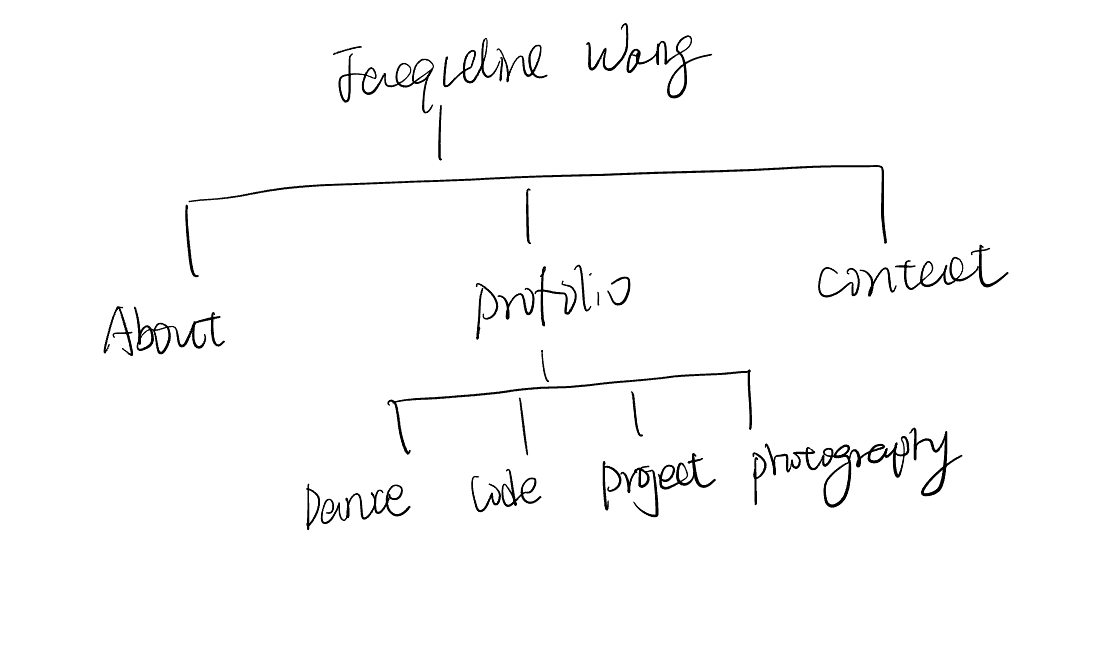 Jacqueline Wang
About
profolio
contact
Dance
Code
project
photography